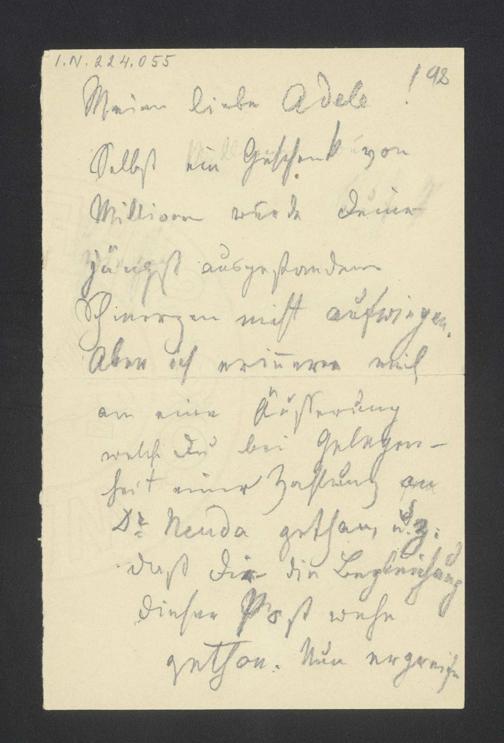 I.N. 224.055
192
Meine liebe Adele!
Selbst ein Geschenk von
Millionen würde Deine
jüngst ausgestandenen
Schmerzen nicht aufwiegen.
Aber ich erinnere mich
an eine Äusserung
welche Du bei Gelegen-
heit einer Zahlung an
Dr. Neuda gethan, u. z.:
daß Dir die Begleichung
dieser Post wehe
gethan. Nun ergreife